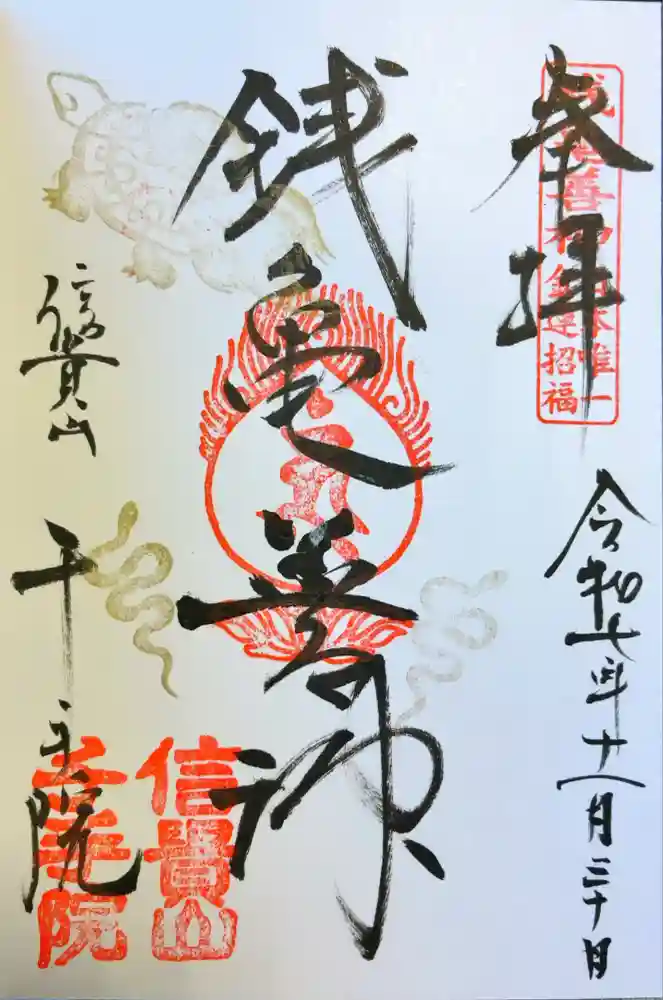 奉拝
本唯一
善神金運招福
令和七年十一月三十日
銭亀善神
信貴山
千手院
信貴山
千手院